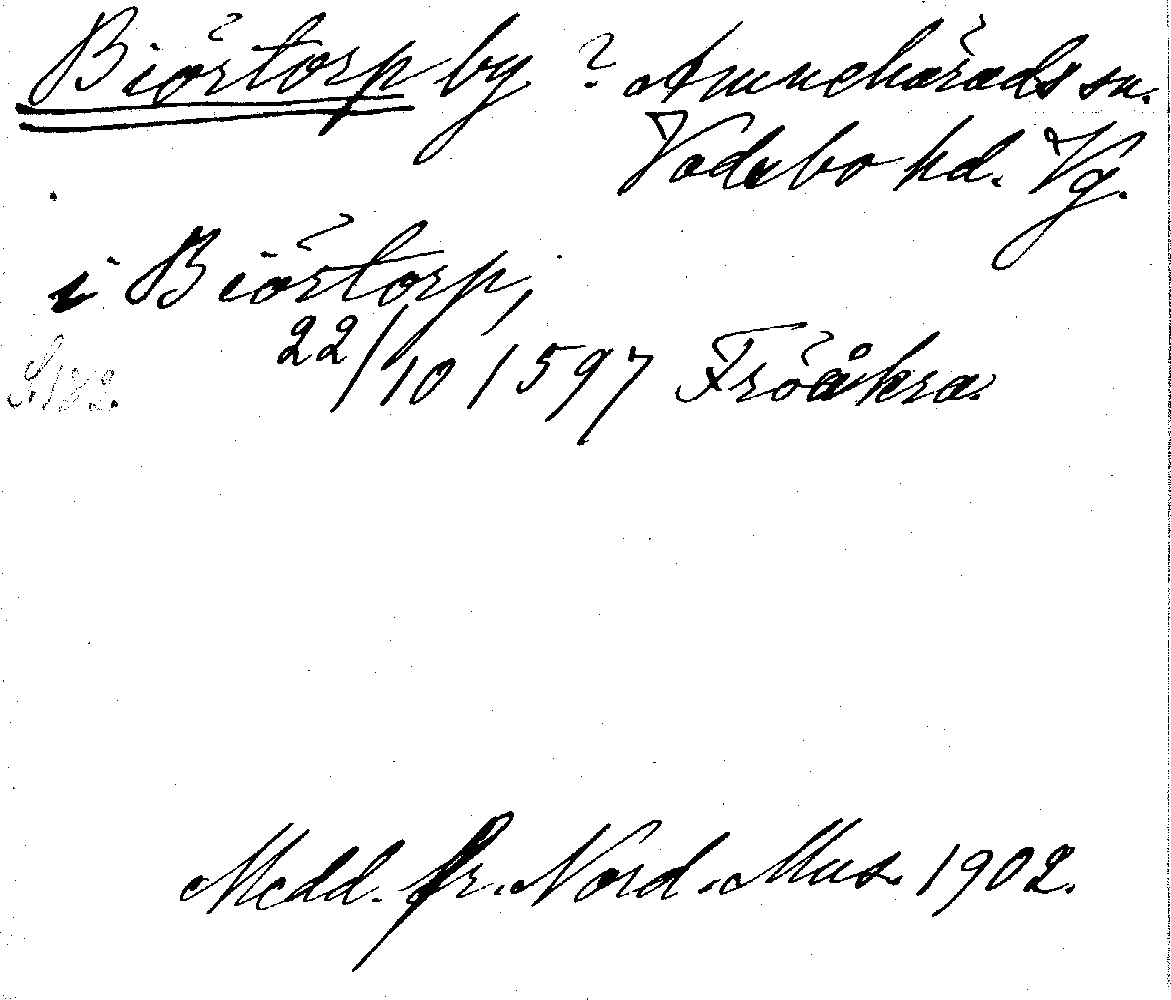 Biörtorp by ? Amnehärads sn.
Vadsbo hd. Vg.
i Biörtorp,
22/10 1597 Fröåkra.
S. 182.
Medd. fr. Nord. Mus. 1902.